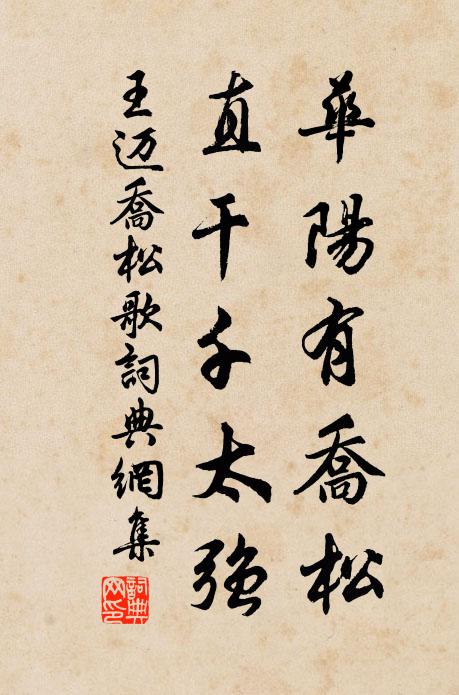 華陽有喬松
直干千太強
王迈喬松歌詞典網集
詞典网印